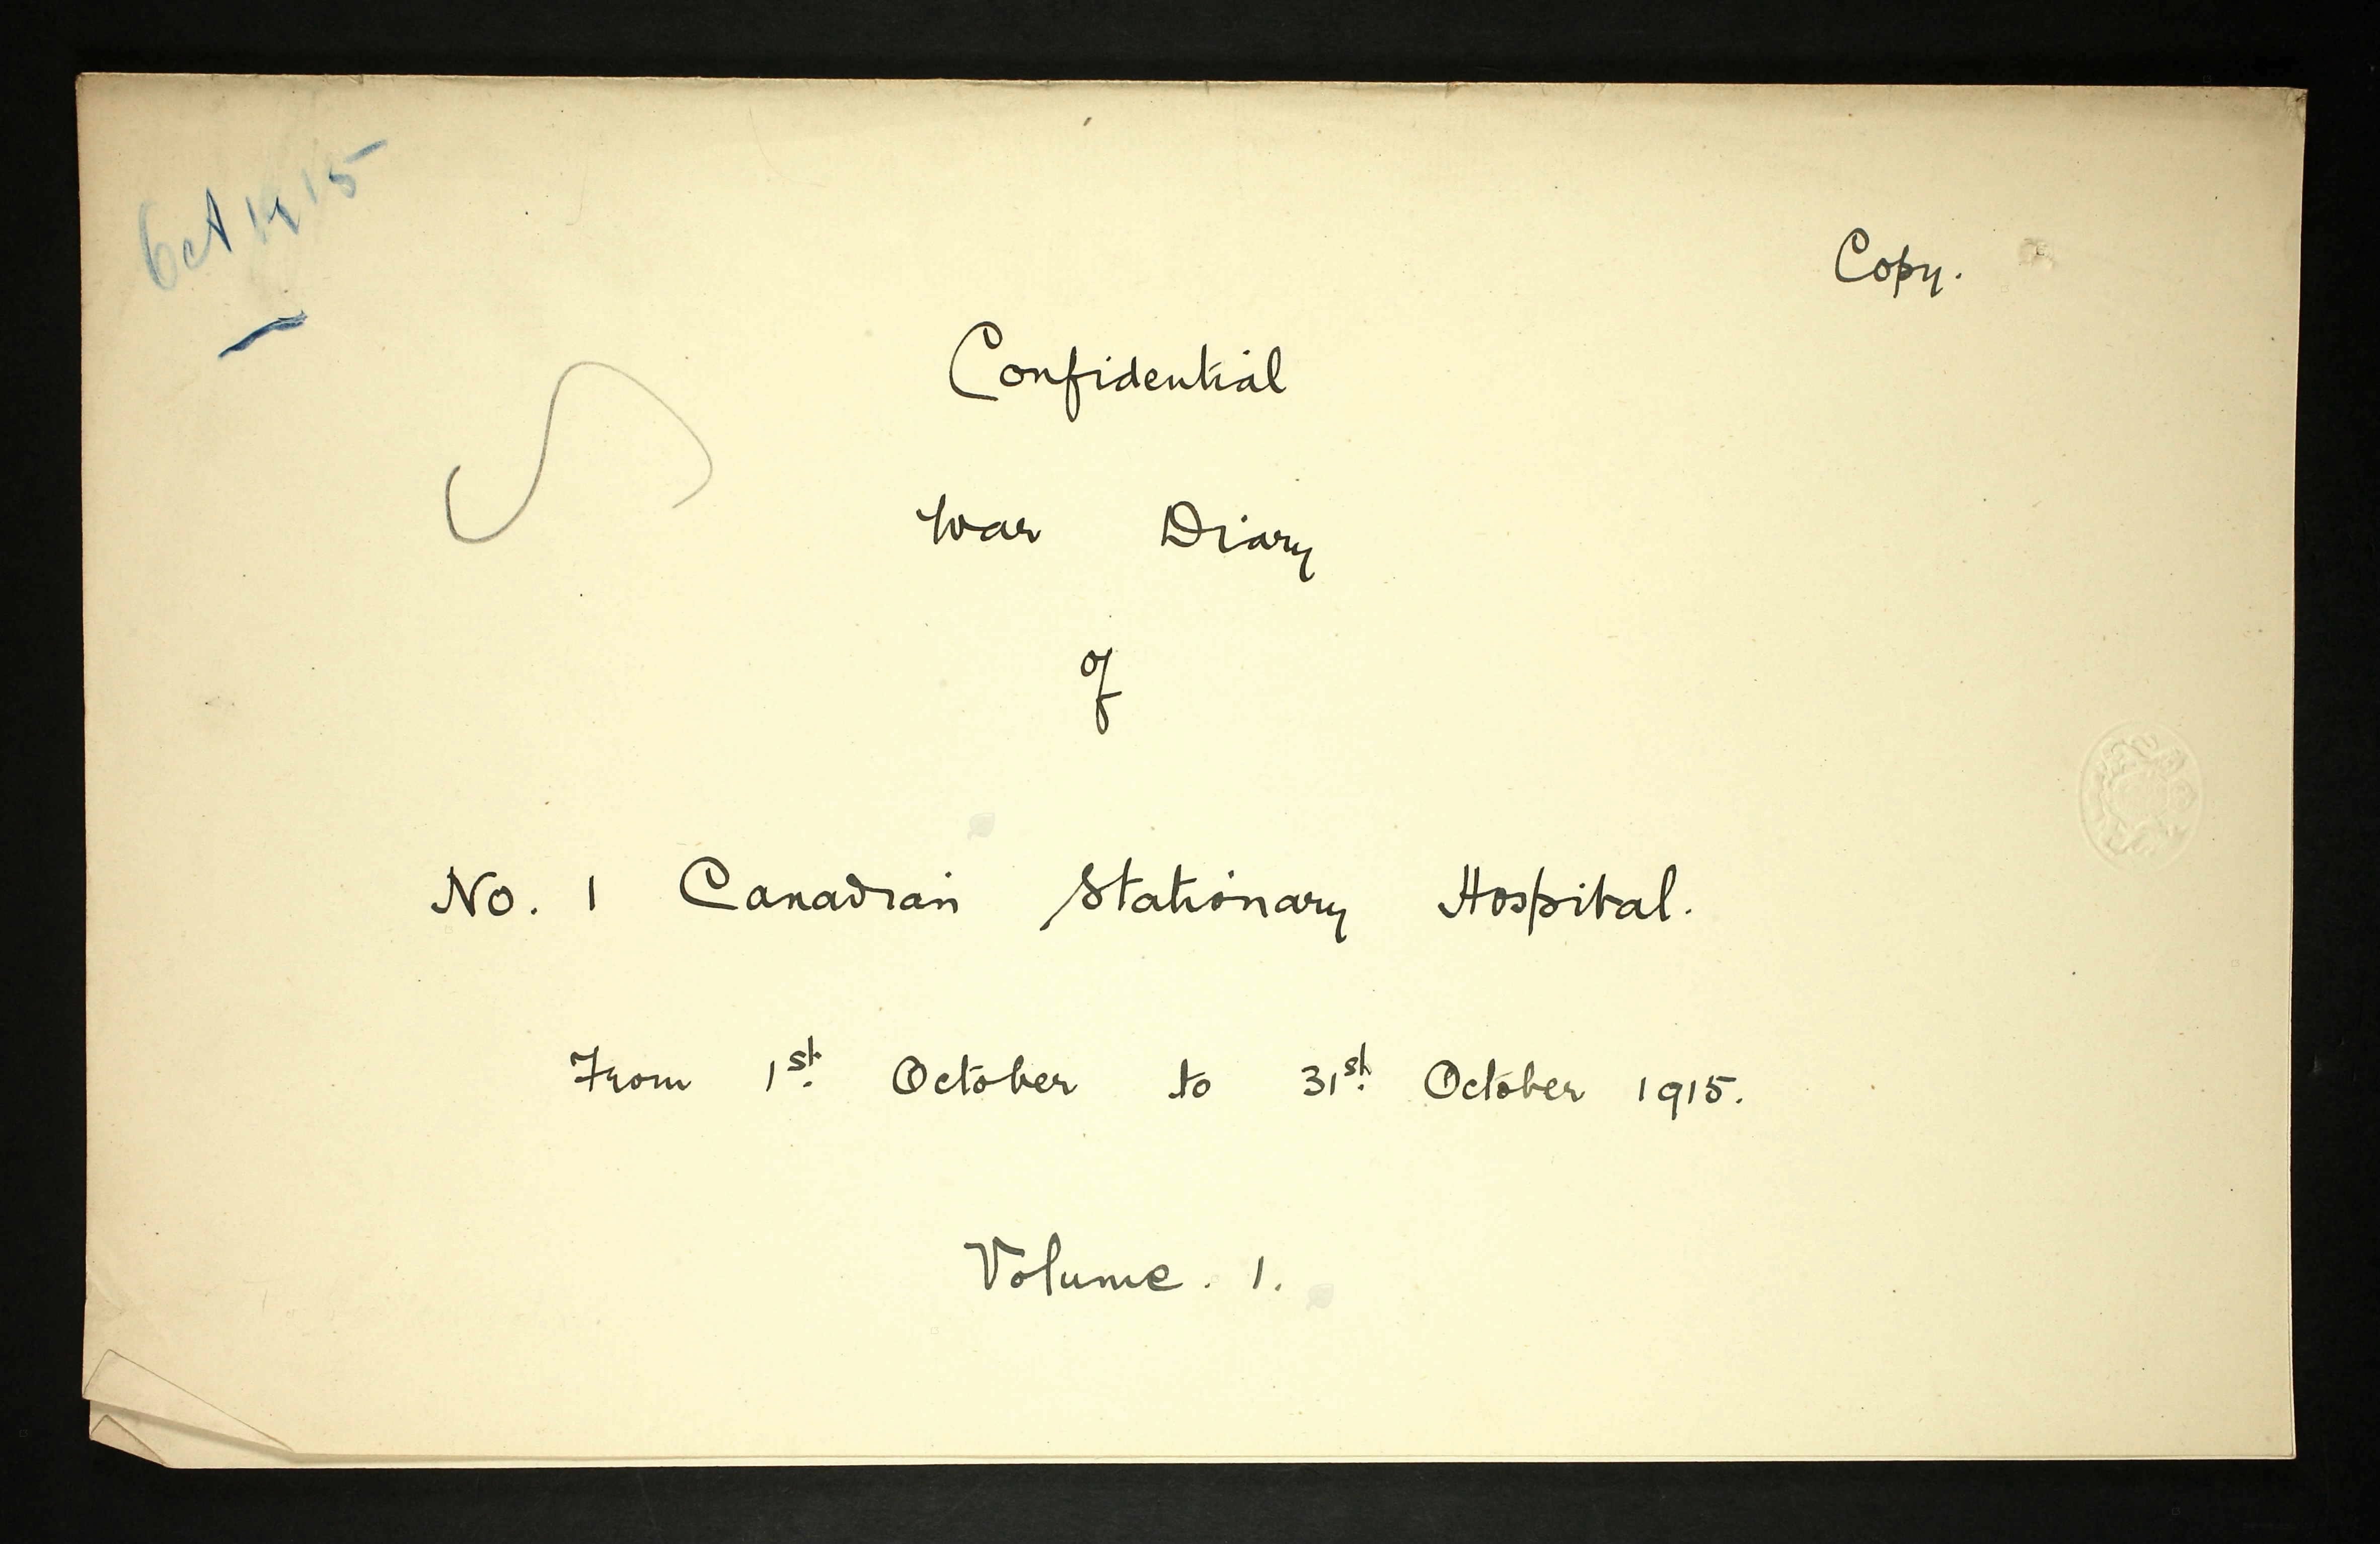 Oct 1915
Copy.
Confidential
War Diary
of
No. 1 Canadian Stationary Hospital.
From 1st. October to 31st. October 1915.
Volume. 1.